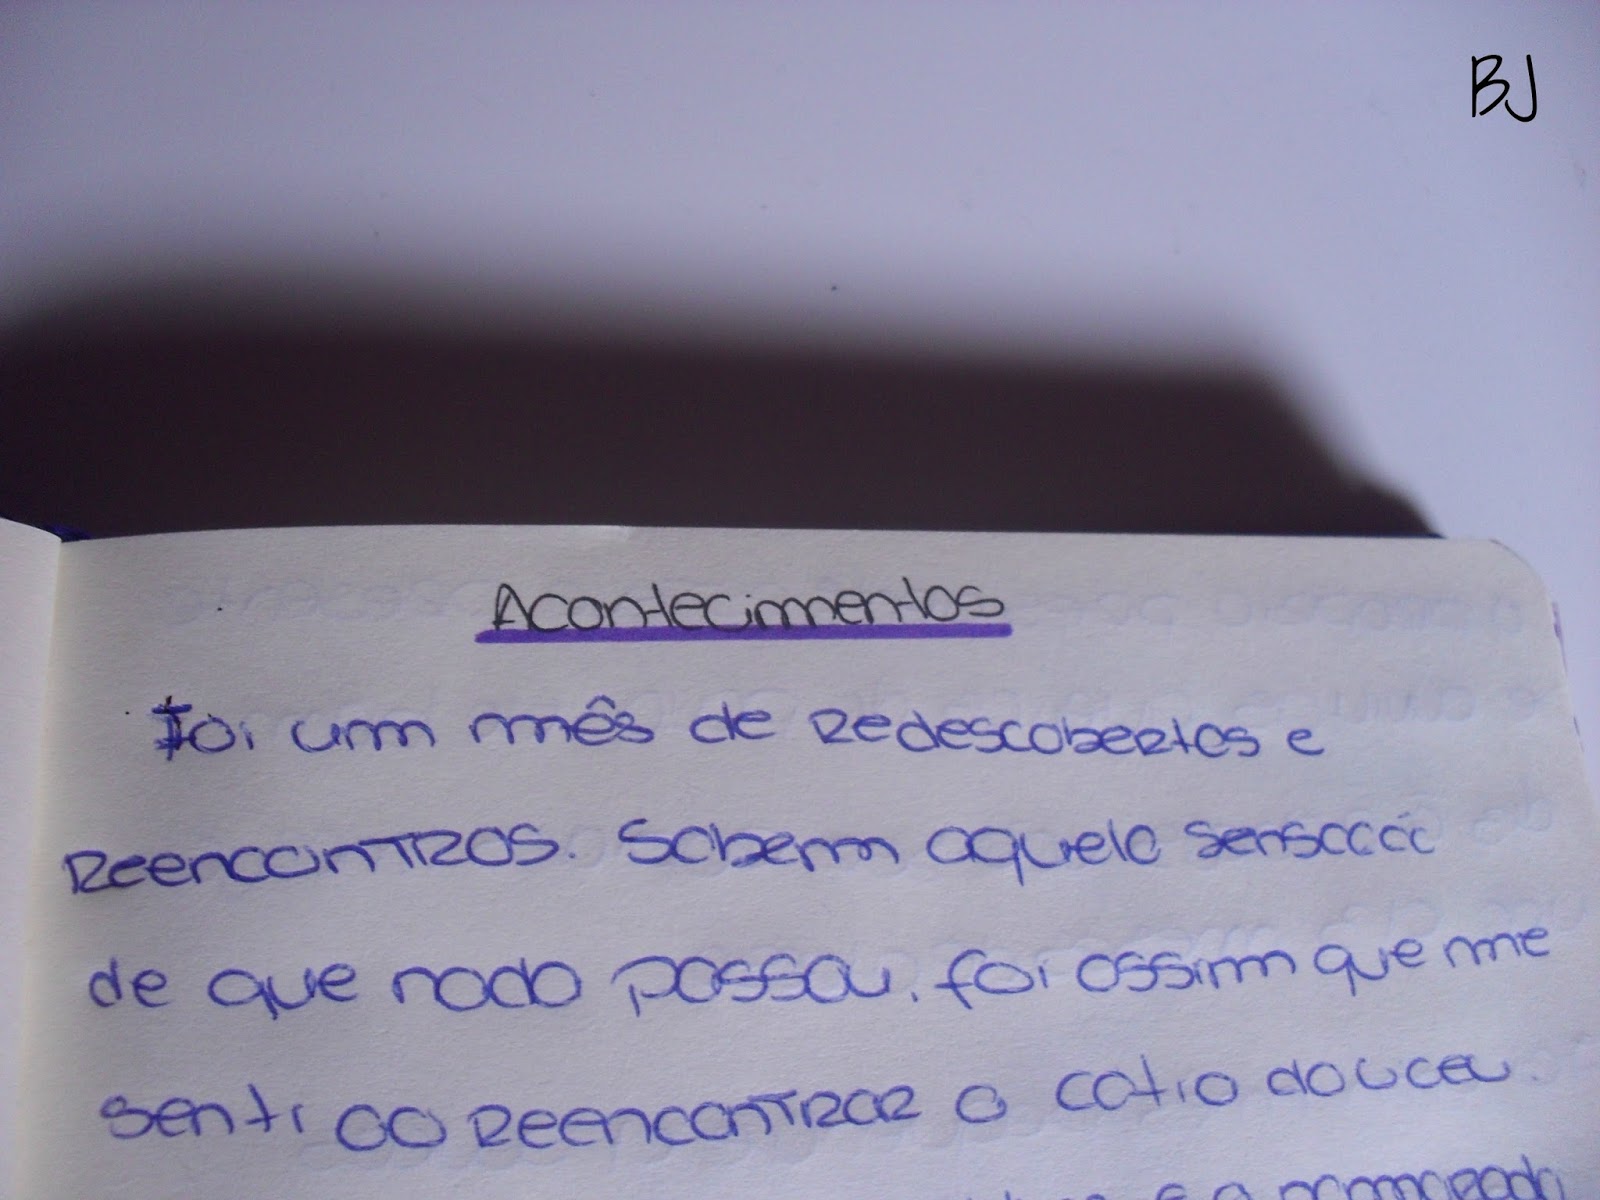 BJ
Acontecimentos
Foi um mês de Redescobertas e
Reencontros. Sabem aquela
de que nada passou, foi assim que me
senti ao Reencontrar a
e a